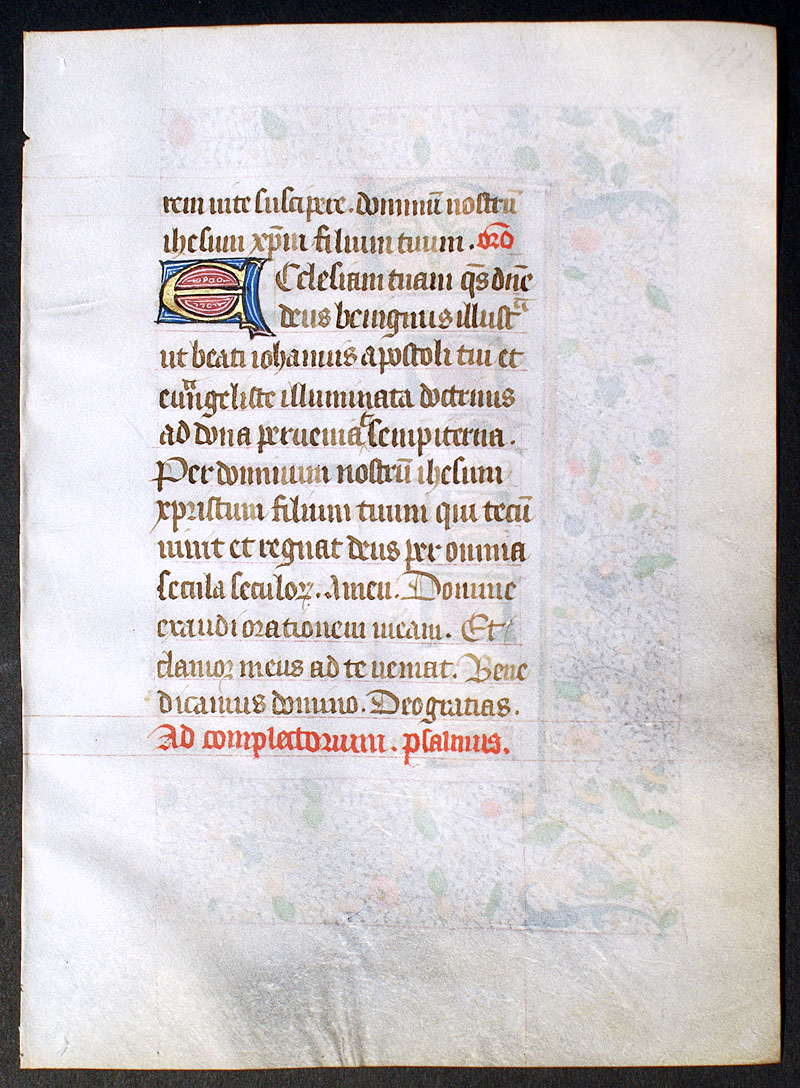 rem uite suscipere. dominū nostrū
ihesum xp̄m filium tuum. or̄o
Ecclesiam tuam q̄s dn̄e
deus benignus illustᵃ
ut beati iohannis apostoli tui et
euᵃngeliste illuminata doctrinis
ad dona perueniaᵗ sempiterna.
Per dominum nostrū ihesum
xpristum filium tuum qui tecū
uiuit et regnat deus per omnia
secula seculoꝝ. Amen. Domine
exaudi orationem meam. Et
clamor meus ad te ueniat. Bene
dicamus domino. Deo gratias.
Ad complectorium. psalmus.